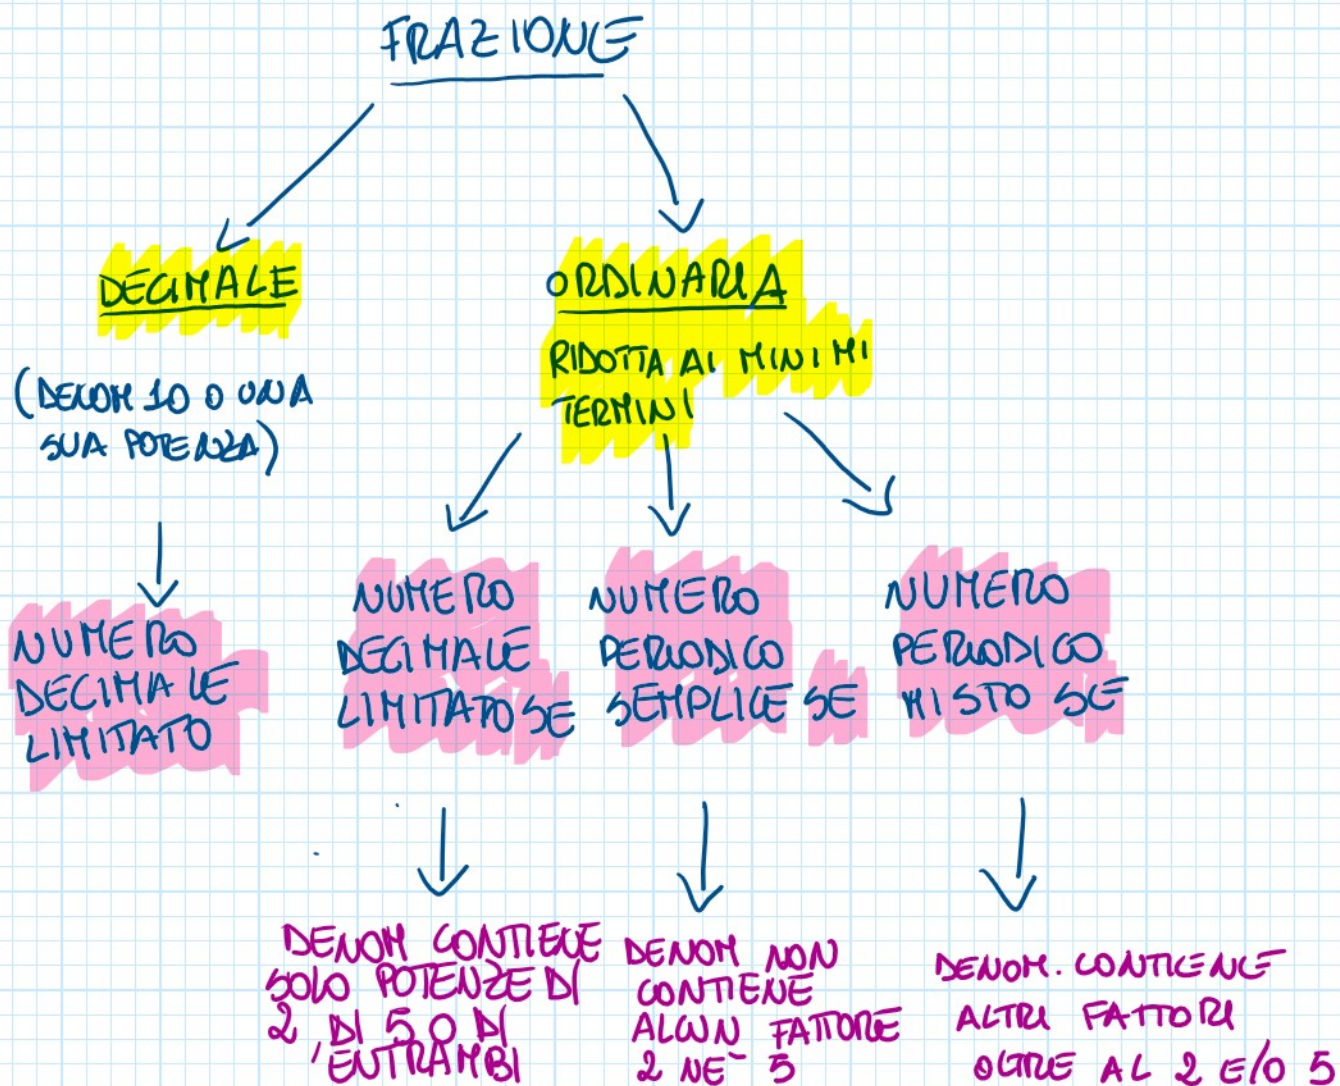 FRAZIONE
DECIMALE
(DENOM 10 O UNA
SUA POTENZA)
NUMERO
DECIMALE
LIMITATO
ORDINARIA
RIDOTTA AI MINIMI
TERMINI
NUMERO
DECIMALE
LIMITATO SE
DENOM CONTIENE
SOLO POTENZE DI
2, DI 5 O DI
ENTRAMBI
NUMERO
PERIODICO
SEMPLICE SE
DENOM NON
CONTIENE
ALCUN FATTORE
2 NE' 5
NUMERO
PERIODICO
MISTO SE
DENOM. CONTIENE
ALTRI FATTORI
OLTRE AL 2 E/O 5